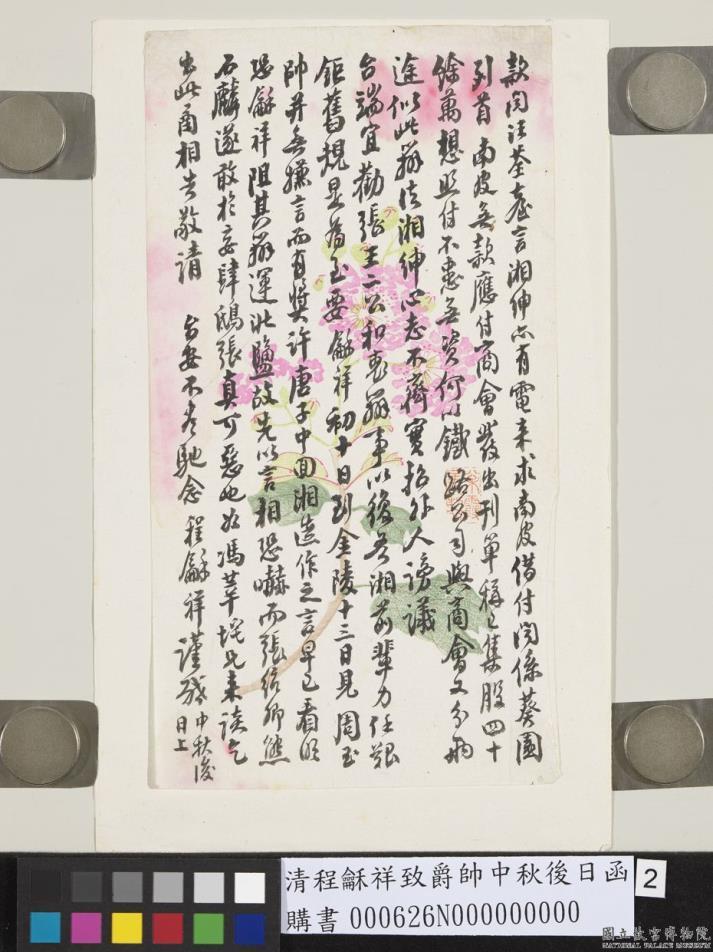 款閱法荃台言湘紳亦有電來求南皮借付閱係葵園
列首南皮無款應付商會發出刊單稱已集股四十
餘萬想照付不患無資何以鐵路公司與商會又分兩
途似此辦法湘紳心志不齊實招外人謗議
台端宜勸張王二公和衷辦事以後吾湘前輩力任艱
鉅舊規是為至要龢祥初十日到金陵十三日見周玉
帥并無嫌言而有獎許唐子中回湘造作之言早已看明
恐龢祥阻其辦運淮鹽故先以言相恐嚇而張紹卿熊
石麟遂敢於妄肆鴟張真可惡也如馮莘垞兄來談乞
出此函相告敬請
台安不盡馳念 程龢祥謹啟 中秋後日上
清程龢祥致爵帥中秋後日函
購書 000626N000000000
2
國立故宮博物院
NATIONAL PALACE MUSEUM